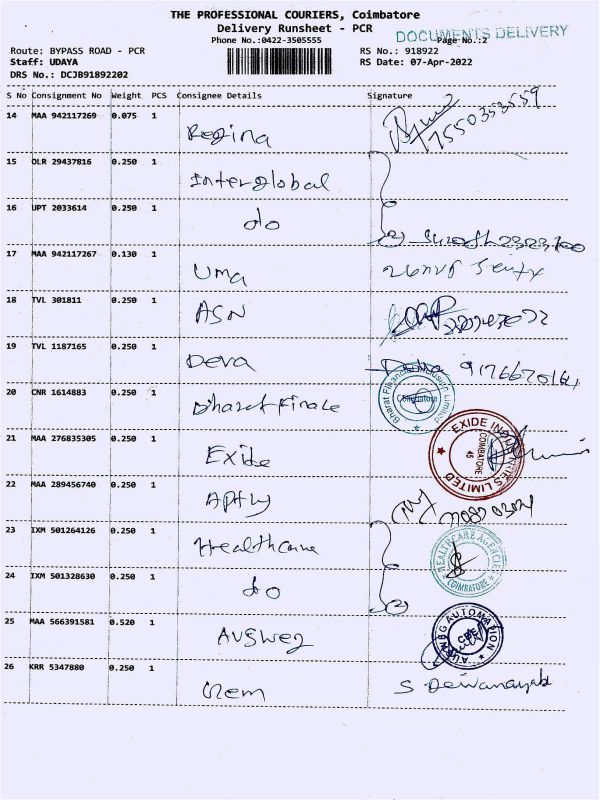 THE PROFESSIONAL COURIERS, Coimbatore
Delivery Runsheet - PCR
DOCUMENTS DELIVERY
Phone No.:0422-3505555
Page No.:2
Route: BYPASS ROAD - PCR
RS No.: 918922
Staff: UDAYA
RS Date: 07-Apr-2022
DRS No.: DCJB91892202
S No Consignment No Weight PCS Consignee Details Signature
14 MAA 942117269 0.075 1 Regina 7550353559
15 OLR 29437816 0.250 1 Interglobal
16 UPT 2033614 0.250 1 do
17 MAA 942117267 0.130 1 Uma
18 TVL 301811 0.250 1 ASN
19 TVL 1187165 0.250 1 Deva
20 CNR 1614883 0.250 1 Bharat Finance Bharat Financial Inclusion Limited Coimbatore
21 MAA 276835305 0.250 1 Exide EXIDE INDUSTRIES LIMITED COIMBATORE 45
22 MAA 289456740 0.250 1
23 IXM 501264126 0.250 1 Healthcare HEALTHCARE AGENCIES COIMBATORE
24 IXM 501328630 0.250 1 do
25 MAA 566391581 0.520 1 Ausweg AUSWEG AUTOMATION
26 KRR 5347880 0.250 1